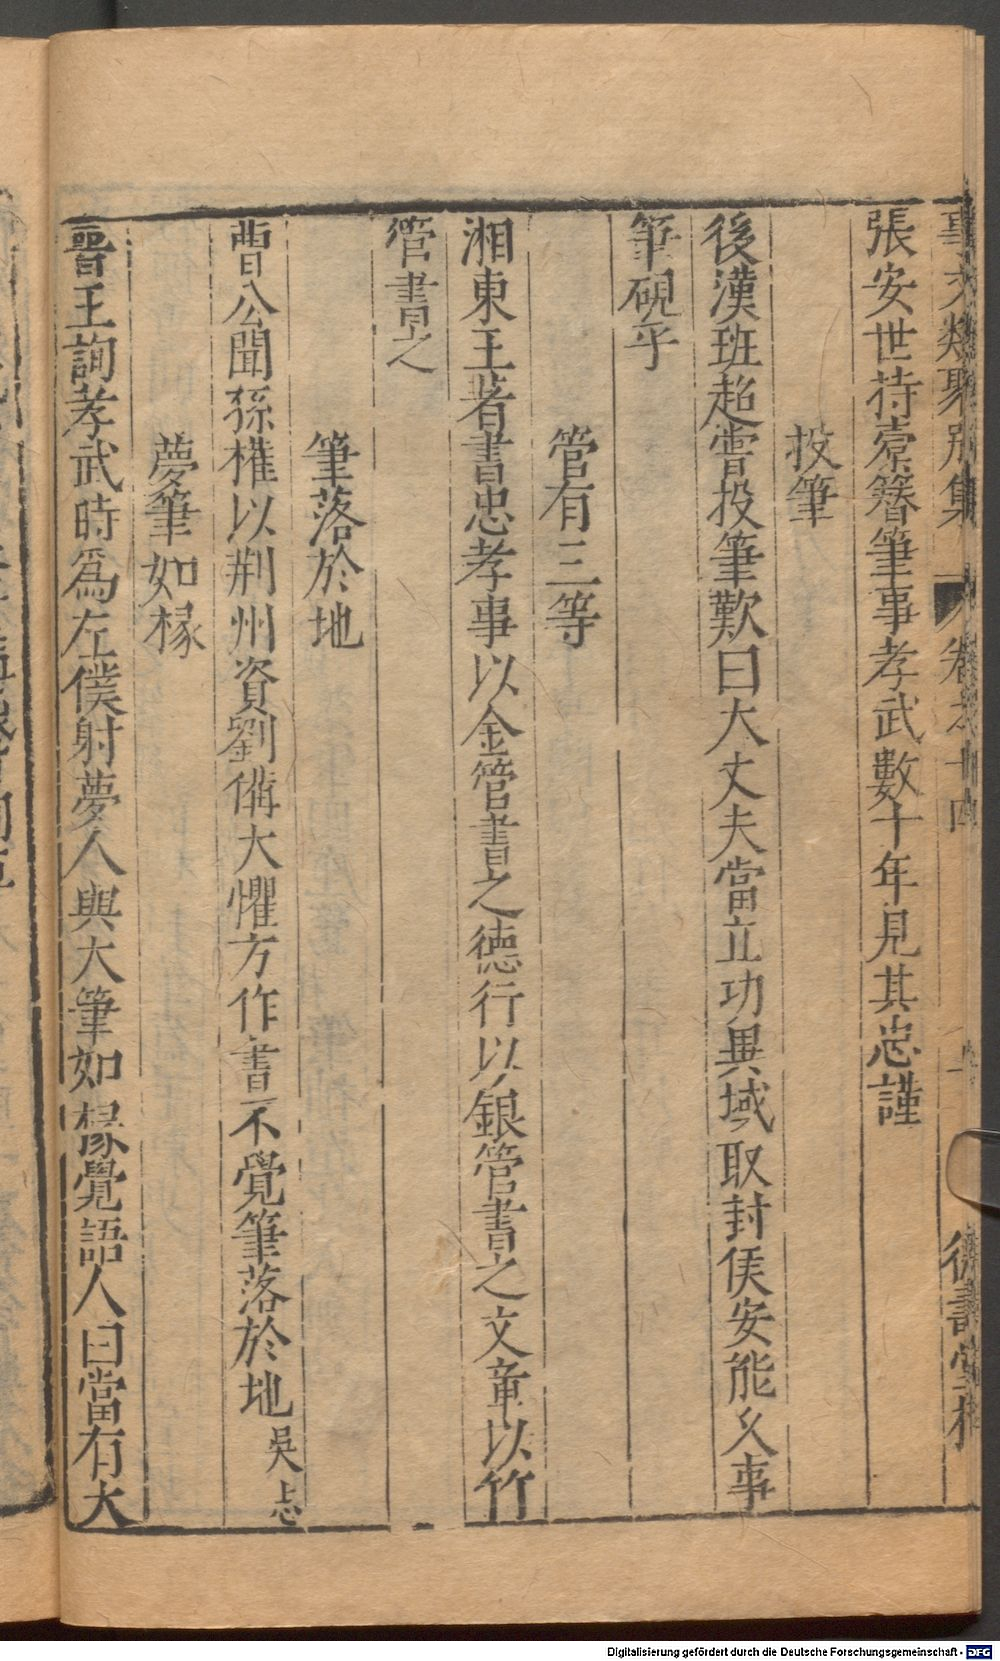 事文類聚別集 卷之十四
張安世持槖簪筆事孝武數十年見其忠謹
投筆
後漢班超嘗投筆歎曰大丈夫當立功異域取封侯安能久事
筆硯乎
管有三等
湘東王著書忠孝事以金管書之德行以銀管書之文章以竹
管書之
筆落於地
曹公聞孫權以荆州資劉備大懼方作書不覺筆落於地吳志
夢筆如椽
晉王詢孝武時爲左僕射夢人與大筆如椽覺語人曰當有大
Digitalisierung gefördert durch die Deutsche Forschungsgemeinschaft - DFG